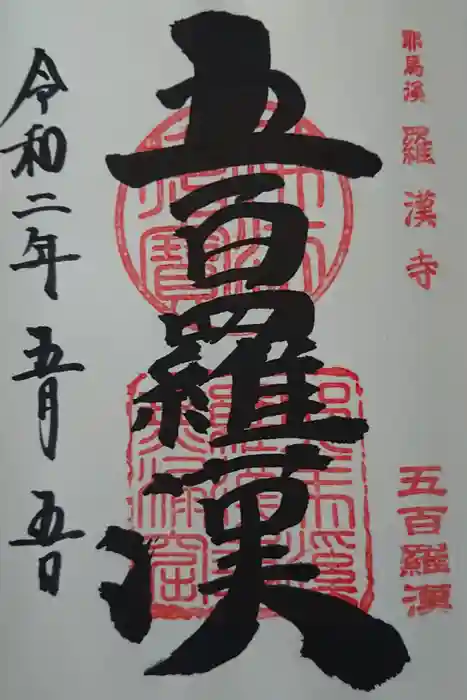 耶馬溪 羅漢寺
五百羅漢
五百羅漢
令和二年 五月 五日